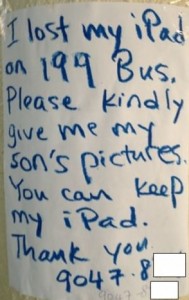 I lost my iPad
on 199 Bus.
Please kindly
give me my
son's pictures.
You can keep
my iPad.
Thank you.
9047.8